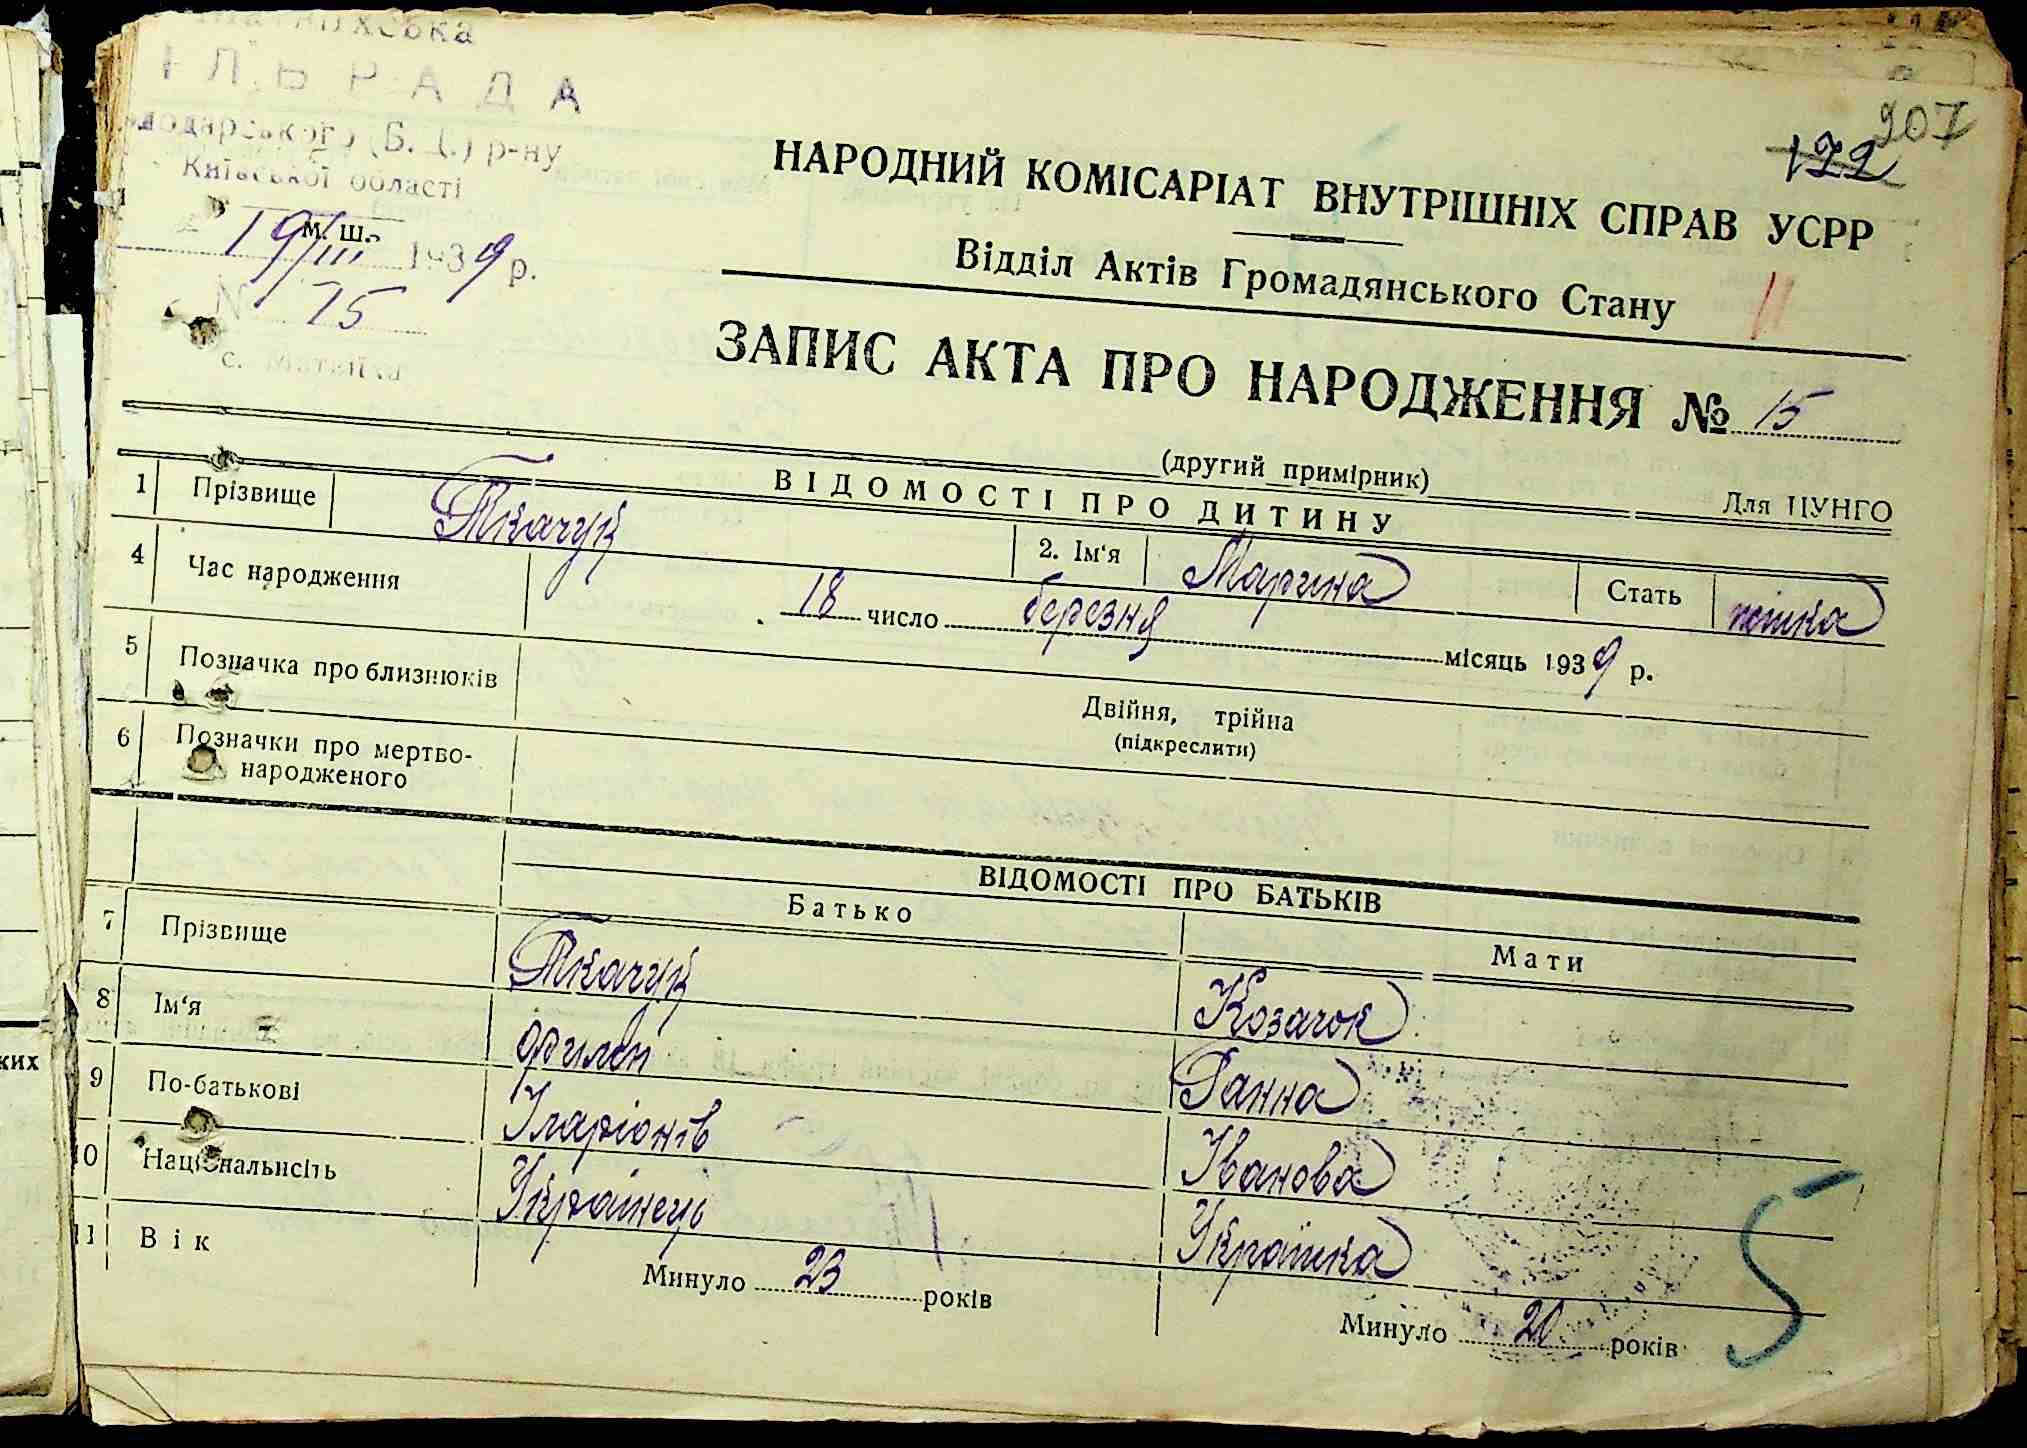 ІЛЬРАДА
(Б. Ц.) р-ну
Київської області
м. ш.
19/III 1939 р.
№ 15
с.
207
122
НАРОДНИЙ КОМІСАРІАТ ВНУТРІШНІХ СПРАВ УСРР
Відділ Актів Громадянського Стану
11
ЗАПИС АКТА ПРО НАРОДЖЕННЯ № 15
(другий примірник)
Для ЦУНГО
ВІДОМОСТІ ПРО ДИТИНУ
1 Прізвище Ткачук 2. Ім'я Марина Стать жінка
4 Час народження 18 число березня місяць 1939 р.
5 Позначка про близнюків Двійня, трійна
(підкреслити)
6 Позначки про мертво-
народженого
ВІДОМОСТІ ПРО БАТЬКІВ
Батько Мати
7 Прізвище Ткачук Козачок
8 Ім'я Филон Ганна
9 По-батькові Іларіонів Іванова
10 Національність Українець Українка
11 Вік Минуло 23 років Минуло 20 років
5
ких